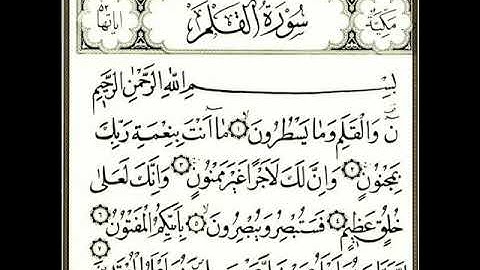 مَكِّيَّة سُورَةُ الْقَلَمِ آياتها ٥٢
بِسْمِ اللَّهِ الرَّحْمَٰنِ الرَّحِيمِ
نٓ وَالْقَلَمِ وَمَا يَسْطُرُونَ ١ مَا أَنْتَ بِنِعْمَةِ رَبِّكَ
بِمَجْنُونٍ ٢ وَإِنَّ لَكَ لَأَجْرًا غَيْرَ مَمْنُونٍ ٣ وَإِنَّكَ لَعَلَىٰ
خُلُقٍ عَظِيمٍ ٤ فَسَتُبْصِرُ وَيُبْصِرُونَ ٥ بِأَيِّكُمُ الْمَفْتُونُ ٦